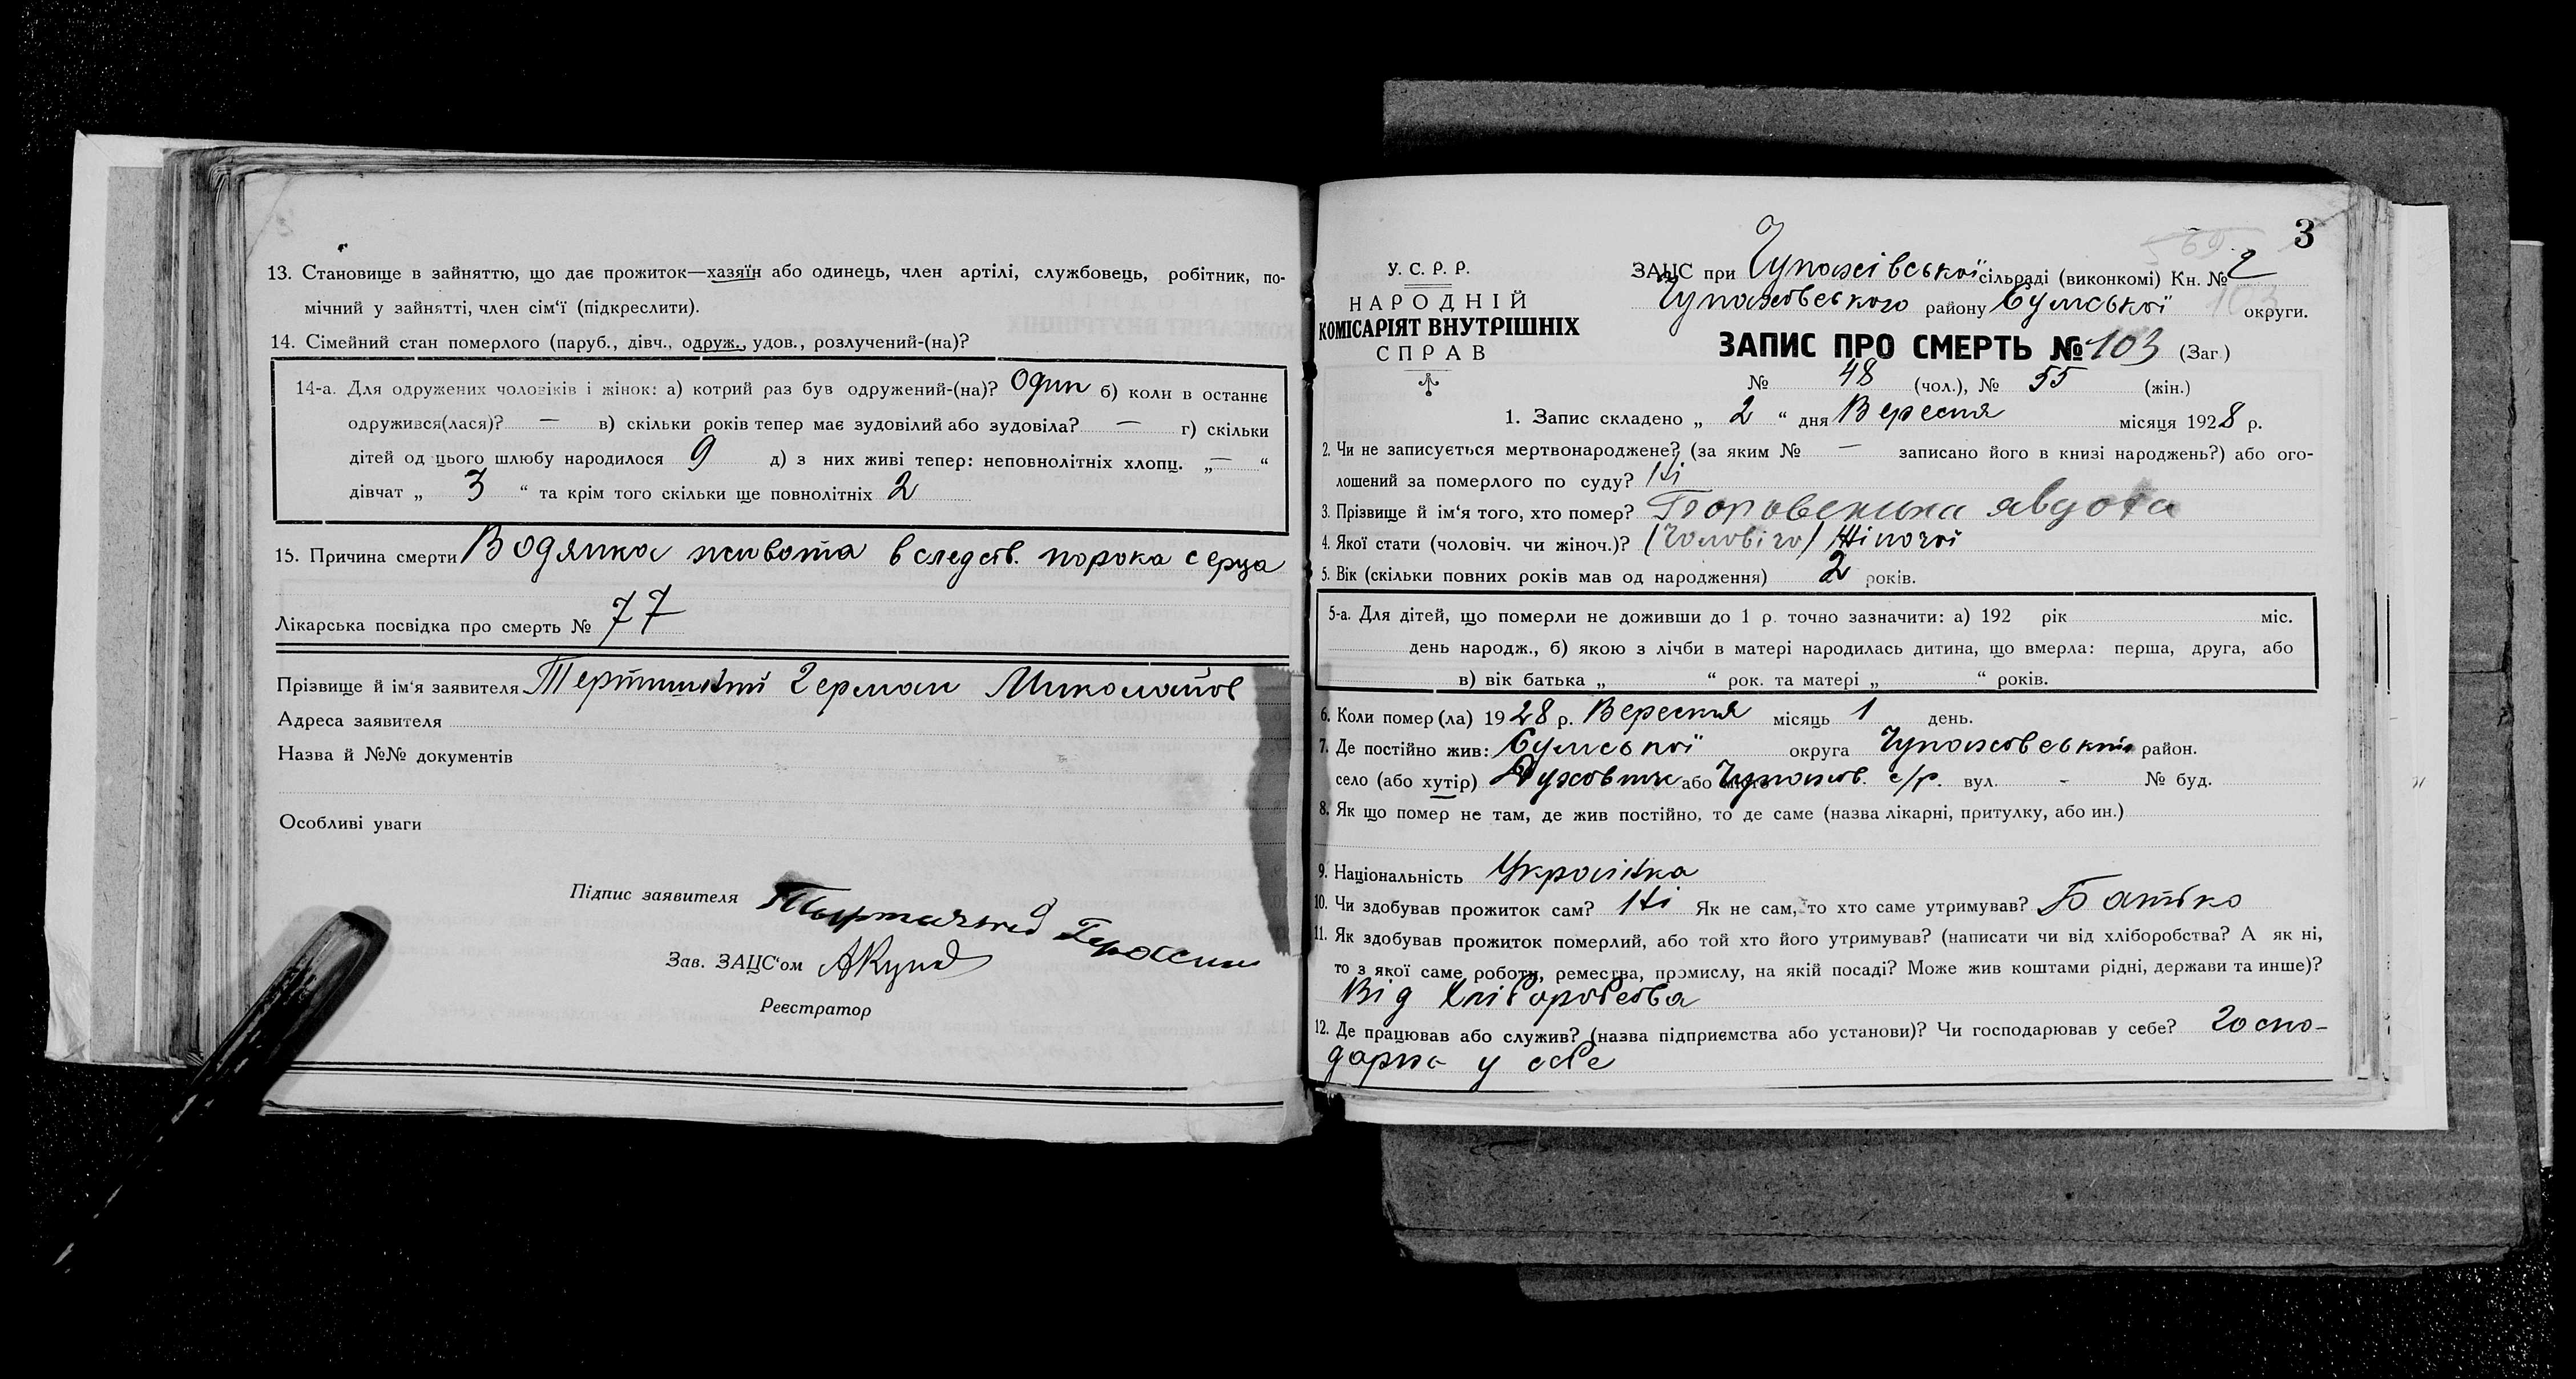 13. Становище в зайняттю, що дає прожиток—хазяїн або одинець, член артілі, службовець, робітник, по-
мічний у зайнятті, член сім‘ї (підкреслити).
14. Сімейний стан померлого (паруб., дівч., одруж., удов., розлучений-(на)?
14-а. Для одружених чоловіків і жінок: а) котрий раз був одружений-(на)? Один б) коли в останнє
одружився(лася)? — в) скільки років тепер має зудовілий або зудовіла? — г) скільки
дітей од цього шлюбу народилося 9 д) з них живі тепер: неповнолітніх хлопц. „—“
дівчат „ 3 “ та крім того скільки ще повнолітніх 2
15. Причина смерти Водянка живота вследств. порока серца
Лікарська посвідка про смерть № 77
Прізвище й ім‘я заявителя Герман Миколайов
Адреса заявителя
Назва й №№ документів
Особливі уваги
Підпис заявителя
Зав. ЗАЦС‘ом
Реєстратор
3
У. С. Р. Р.
НАРОДНІЙ
КОМІСАРІЯТ ВНУТРІШНІХ
СПРАВ
ЗАЦС при Чупахівської сільраді (виконкомі) Кн. № 2
Чупаховського району Сумської округи.
103
ЗАПИС ПРО СМЕРТЬ № 103 (Заг.)
№ 48 (чол.), № 55 (жін.)
1. Запис складено „ 2 “ дня Вересня місяця 1928 р.
2. Чи не записується мертвонароджене? (за яким № — записано його в книзі народжень?) або ого-
лошений за померлого по суду? Ні
3. Прізвище й ім‘я того, хто помер? явдоха
4. Якої стати (чоловіч. чи жіноч.)? (Чоловічо) Жіночої
5. Вік (скільки повних років мав од народження) 2 років.
5-а. Для дітей, що померли не доживши до 1 р. точно зазначити: а) 192 рік міс.
день народж., б) якою з лічби в матері народилась дитина, що вмерла: перша, друга, або
в) вік батька „ “ рок. та матері „ “ років.
6. Коли помер(ла) 1928 р. Вересня місяць 1 день.
7. Де постійно жив: Сумської округа Чупаховський район.
село (або хутір) або місто Чупахов. с/р. вул. - № буд.
8. Як що помер не там, де жив постійно, то де саме (назва лікарні, притулку, або ин.)
9. Національність Українка
10. Чи здобував прожиток сам? Ні Як не сам, то хто саме утримував? Батько
11. Як здобував прожиток померлий, або той хто його утримував? (написати чи від хліборобства? А як ні,
то з якої саме роботи, ремества, промислу, на якій посаді? Може жив коштами рідні, держави та инше)?
Від хліборобства
12. Де працював або служив? (назва підприємства або установи)? Чи господарював у себе? Госпо-
дарка у себе